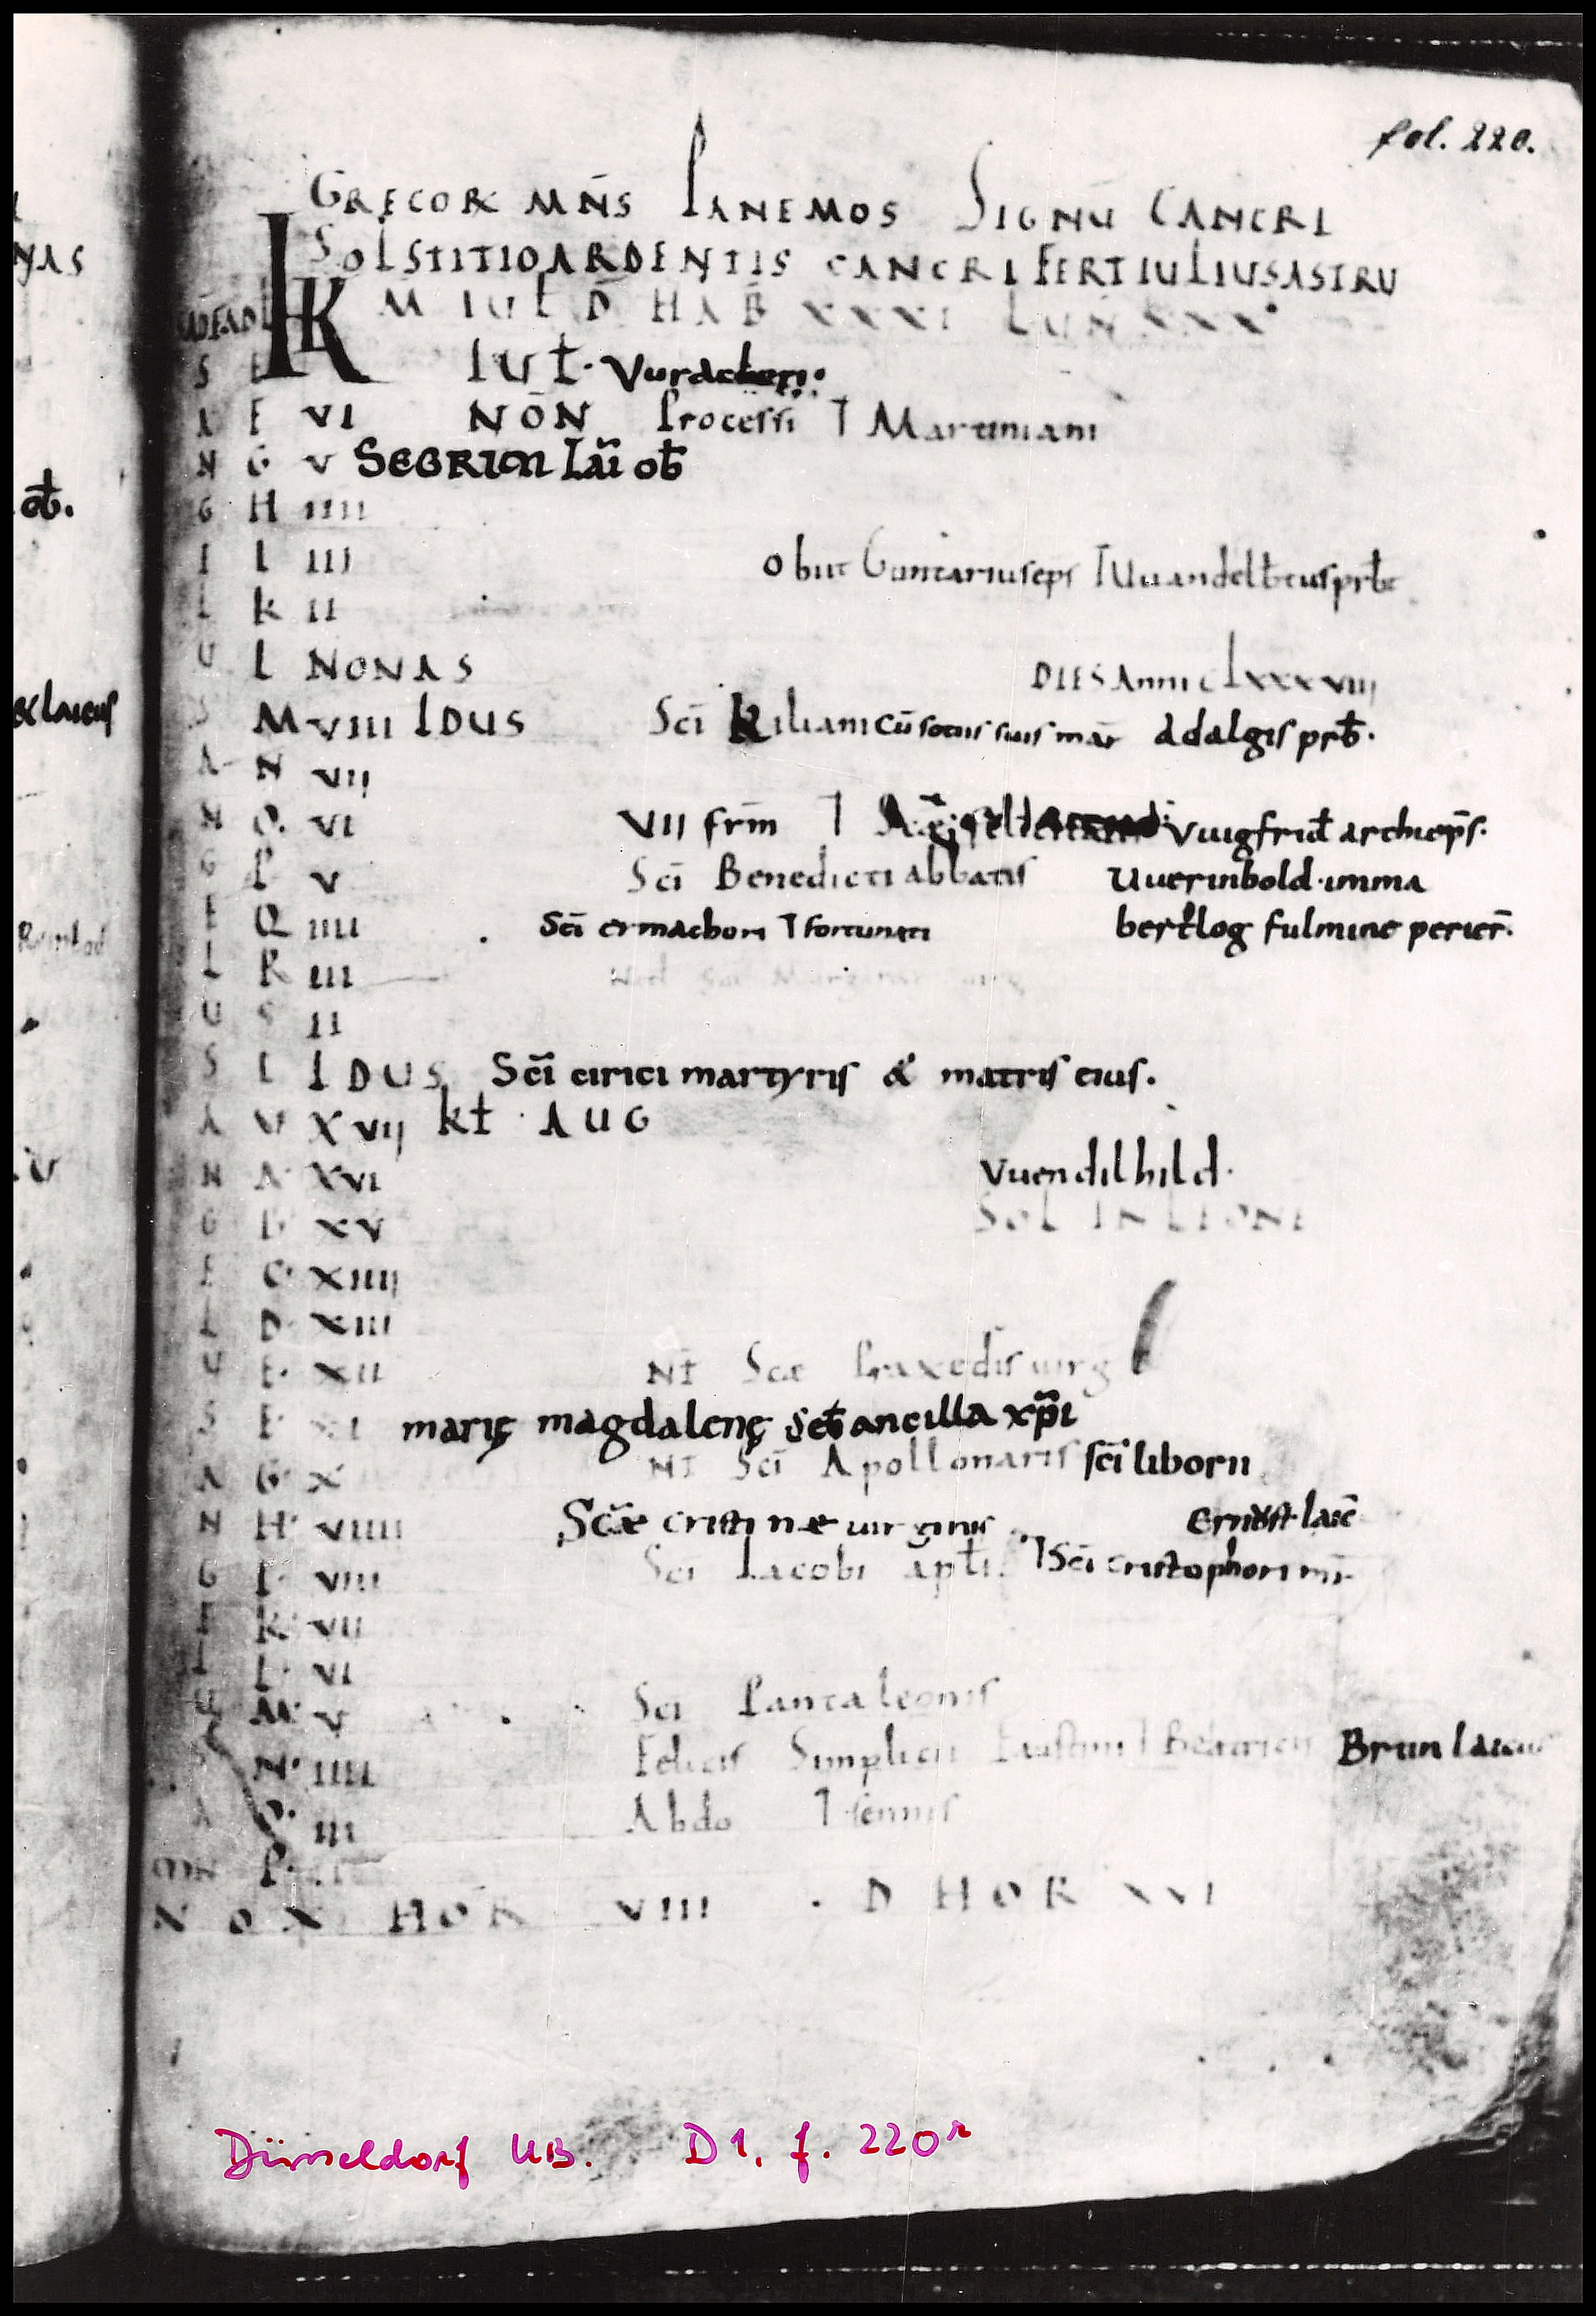 fol. 220.
GRECOR MN̄S PANEMOS SIGNŪ CANCRI
SOLSTITIO ARDENTIS CANCRI FERT IULIUS ASTRU
K M IUL D HAB XXXI LUN XXX
S E IUŁ·
A F VI NŌN Processi ⁊ Martiniani
N G V SEGRIM Lāi ob̄
G H IIII
I I III Obiit Guntarius eps ⁊ Uuandelb̄tus prb̄t
L K II
U L NONAS DIES Anni CLXXXVIII
S M VIII IDUS Scī Kiliani cū sociis suis mār Adalgis prb̄.
A N VII
N O. VI VII frm̄ ⁊ Vuigfrid archiep̄s.
G P V Scī Benedicti abbatis Uuerinbold·imma
E Q IIII Scī ermachori ⁊ fortunati bertlog fulmine perier̄.
L R III
U S II
S T IDUS Scī cirici martyris & matris eius.
A V XVII kł · AUG
N A· XVI Vuendilhild.
G B· XV SOL IN LEONE
E C· XIIII
L D· XIII
U E· XII NT Scae Praxedis uirg
S F· XI marię magdalenę ancilla xp̄i
A G· X NT Scī Apollonaris scī liborii
N H· VIIII Scāe cristinae uirginis Ernost laic̄
G I· VIII Sci Iacobi apłi. ⁊ Scī cristophori mr̄
E K· VII
L L· VI
U M· V Sci Pantaleonis
S N· IIII Felicis Simplicii Faustini ⁊ Beatricis Brun laicus
A O· III Abdo ⁊ sennis
P·
NOX HOR VIII · D HOR XVI
Düsseldorf UB. D1, f. 220r
NAS
ob̄.
laicus